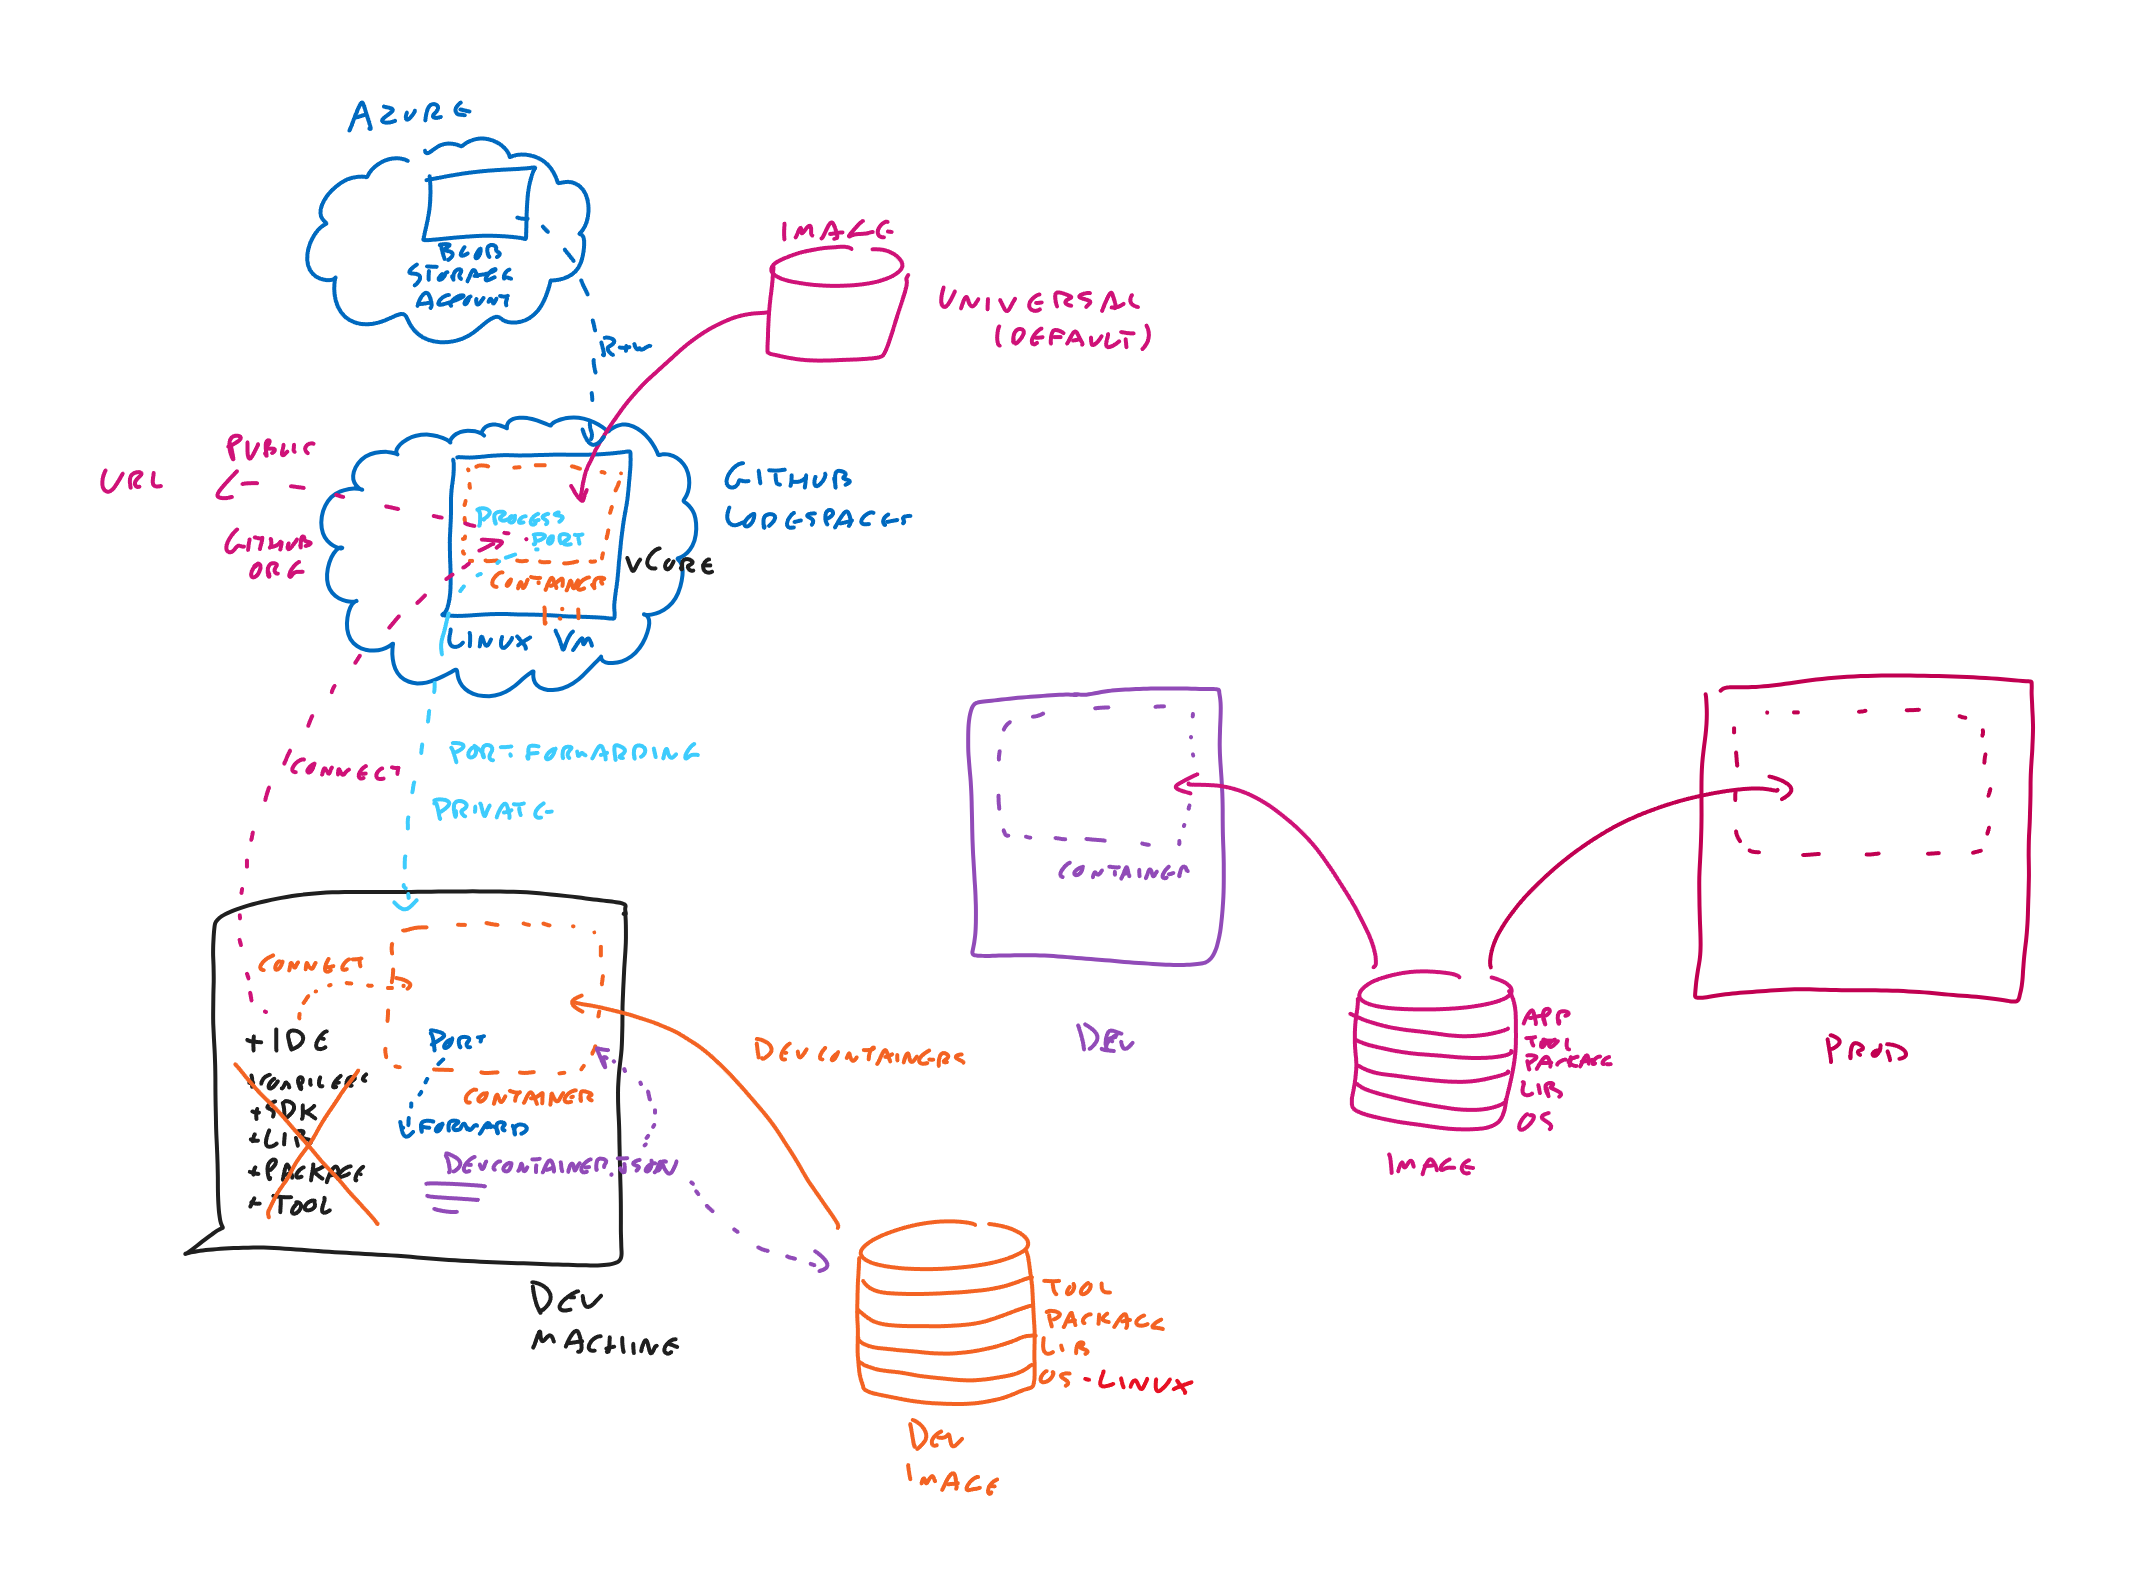 AZURE
BLOB
STORAGE
ACCOUNT
IMAGE
UNIVERSAL
(DEFAULT)
R+W
PUBLIC
URL
GITHUB
ORG
GITHUB
CODESPACES
PROCESS
PORT
CONTAINER
VCORE
LINUX VM
CONNECT
PORT FORWARDING
PRIVATE
CONNECT
+ IDE
+COMPILERS
+SDK
+LIB
+PACKAGE
+ TOOL
PORT
CONTAINER
FORWARD
DEVCONTAINER.JSON
DEV
MACHINE
DEVCONTAINERS
TOOL
PACKAGE
LIB
OS - LINUX
DEV
IMAGE
CONTAINER
DEV
APP
TOOL
PACKAGE
LIB
OS
IMAGE
PROD